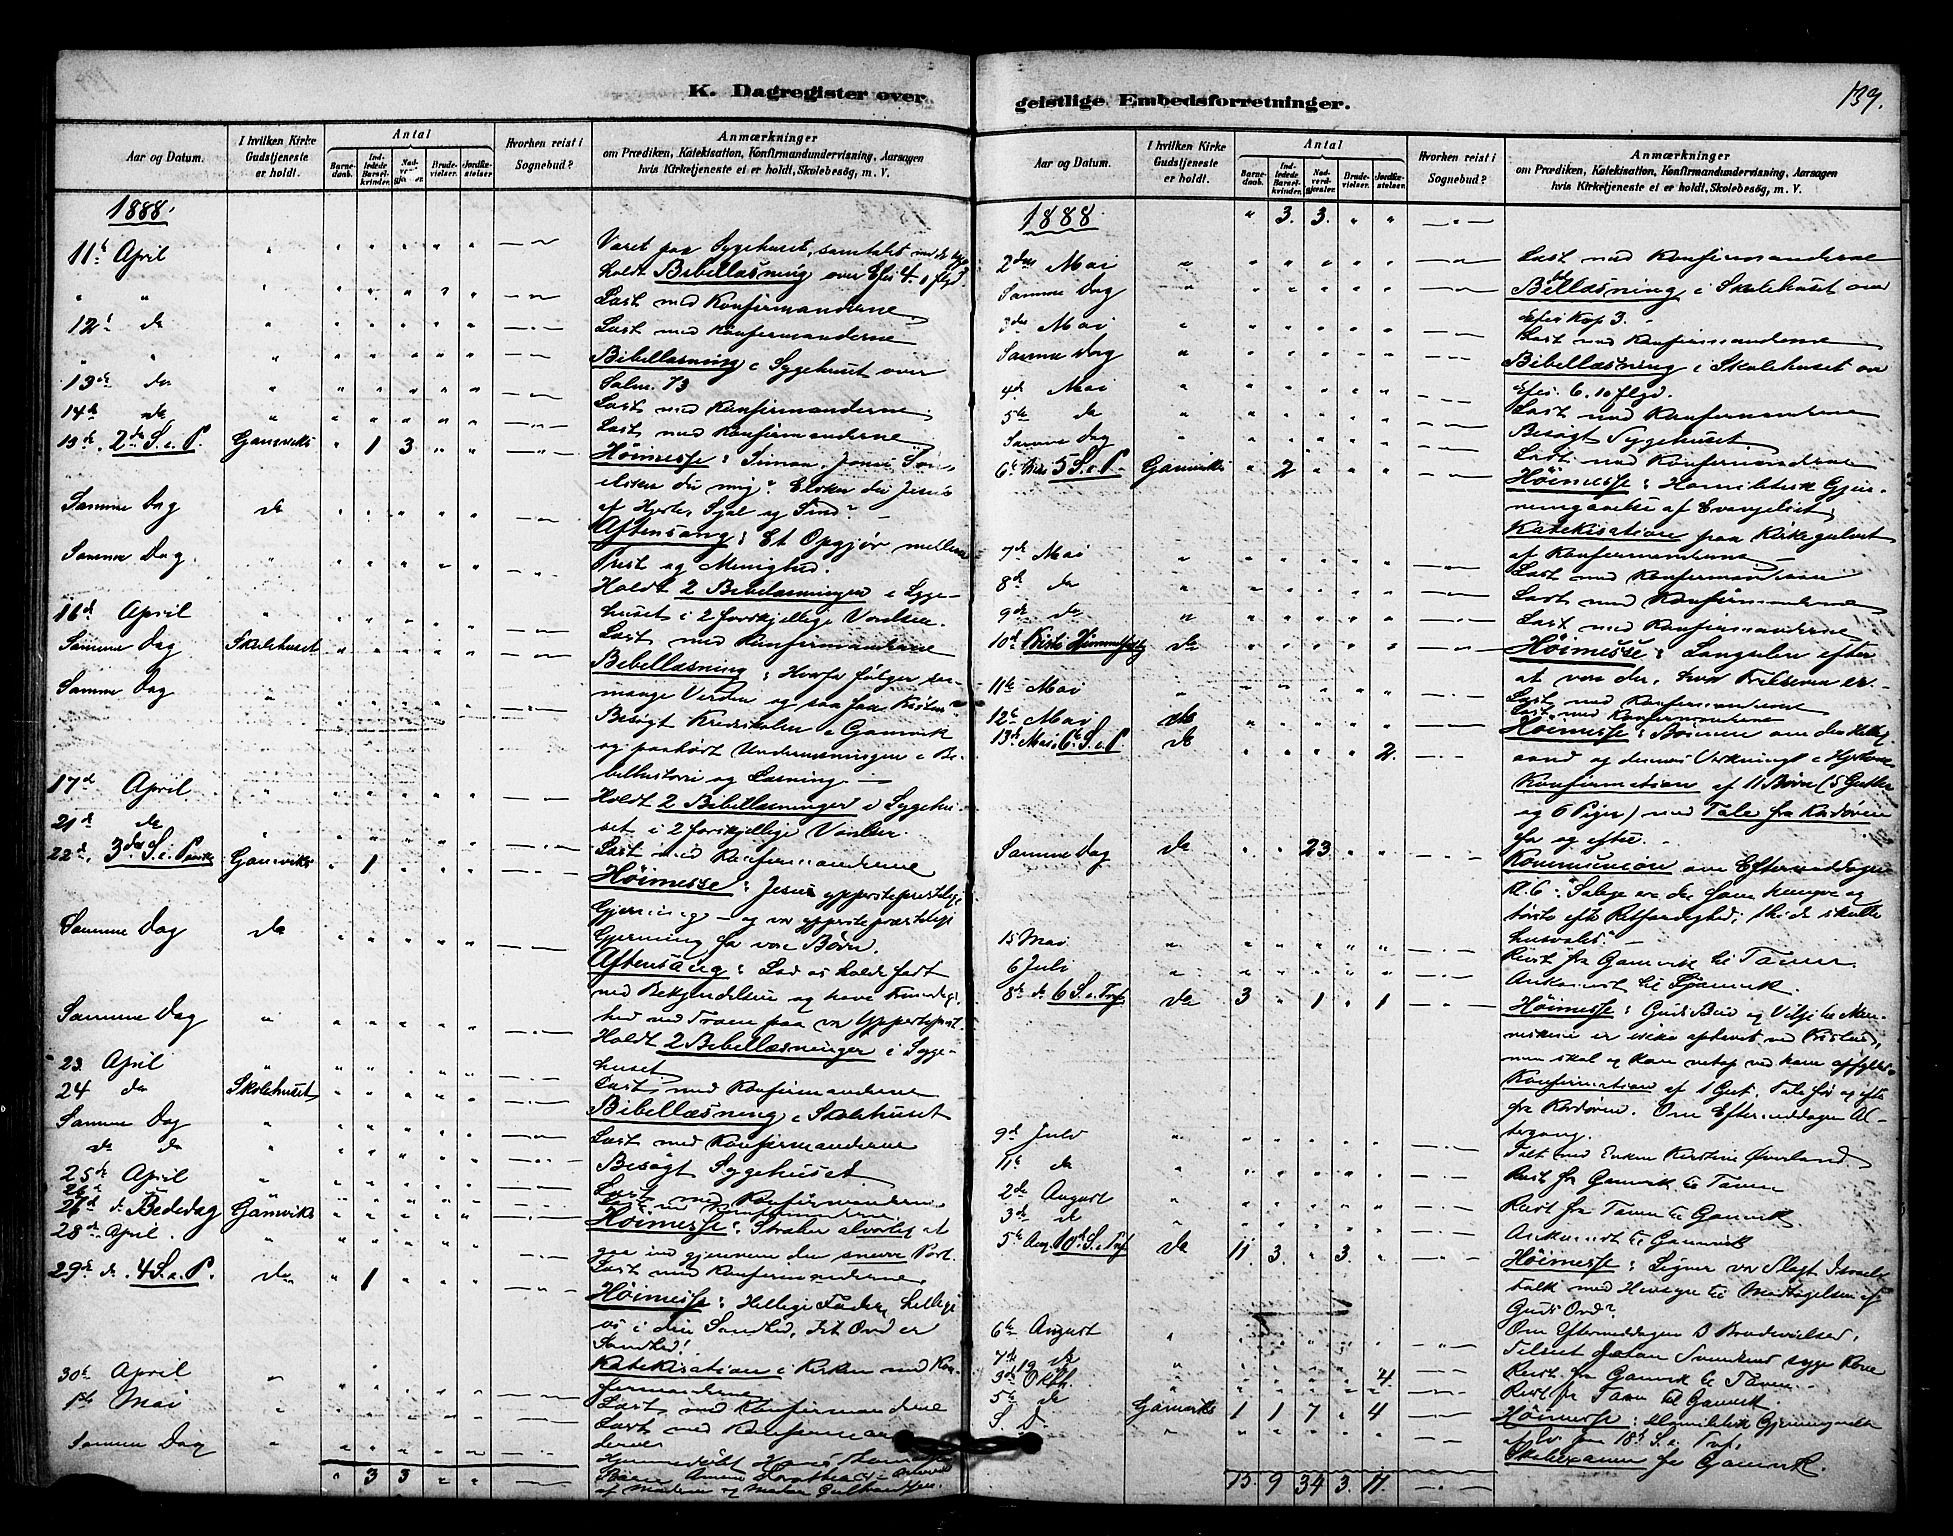 K. Dagregister over
Aar og Datum.
I hvilken Kirke Gudstjeneste er holdt.
Antal
Barnedaab.
Indledede Barselkvinder.
Nadvergjester.
Brudevielser.
Jordfæstelser.
Hvorhen reist i Sognebud?
Anmærkninger
om Prædiken, Katekisation, Konfirmandundervisning, Aarsagen
hvis Kirketjeneste ei er holdt, Skolebesøg, m. V.
1888.
11te April Været paa Sygehuset, samtalet med de syge
Holdt Bibellæsning over Efes 4. flgd
" " Læst med Konfirmanderne.
12te do Læst med Konfirmanderne
" " Bibellæsning i Sygehuset over
Salm. 73
13de do Læst med Konfirmanderne.
14de do Læst med Konfirmanderne
15de. 2den S. e. P. Gamviks " 1 3 " " Høimesse: Simon, Jonas Søn,
elsker du mig? Elsker du Jesus
af Hjerte, Sjæl og Sind?
Samme Dag do Aftensang: Et Opgjør mellem
Prest og Menighed.
Samme Dag. Holdt 2 Bibellæsninger i Syge-
huset i 2 forskjellige Værelser.
16de April Læst med Konfirmanderne
Samme Dag Skolehuset Bibellæsning: Hvorfor følger saa
mange Verden og saa faa Kristus
Samme Dag Besøgt Kredsskolen i Gamvik
og paahørt Undervisningen i Bi-
belhistorie og Læsning
17de April Holdt 2 Bibellæsninger i Sygehu-
set i 2 forskjellige Værelser.
21de do Læst med Konfirmanderne
22de. 3die S. e. Paaske Gamviks " 1 " " " Høimesse: Jesus ypperstepræstelige
Gjerning og vor ypperstepræstelige
Gjerning for vore Børn.
Samme Dag do Aftensang: Lad os holde fast
ved Bekjendelsen og have Frimodig-
hed ved Troen paa vor Ypperstepræst
Samme Dag Holdt 2 Bibellæsninger i Syge-
huset
23 April Læst med Konfirmanderne
24 do Skolehuset Bibellæsning i Skolehuset
Samme Dag Læst med Konfirmanderne
do do Besøgt Sygehuset.
25de April Læst med Konfirmanderne
26de
27de d. Bededag Gamviks Høimesse: Stræber alvorlig at
gaa ind gjennem den snevre Port
28de April. Læst med Konfirmanderne.
29de d. 4 S. e. P. do " 1 " " " Høimesse: Hellige Fader, hellige
os i din Sandhed, dit Ord er
Sandhed!
Katekisation i Kirken med Kon-
firmanderne
30te April Læst med Konfirmanderne
1ste Mai Læst med Konfirman-
derne
Samme Dag Hjemmedøbt
" 3 3 " "
geistlige Embedsforretninger.
139.
Aar og Datum.
I hvilken Kirke Gudstjeneste er holdt.
Antal
Barnedaab.
Indledede Barselkvinder.
Nadvergjester.
Brudevielser.
Jordfæstelser.
Hvorhen reist i Sognebud?
Anmærkninger
om Prædiken, Katekisation, Konfirmandundervisning, Aarsagen
hvis Kirketjeneste ei er holdt, Skolebesøg, m. V.
1888. " 3. 3. " "
2den Mai Læst med Konfirmanderne
Samme Dag Bibellæsning i Skolehuset over
Efes Kap 3.
3die Mai Læst med Konfirmanderne
Samme Dag Bibellæsning i Skolehuset over
Efes. 6, 10 flgd.
4de Mai Læst med Konfirmanderne
5te do Besøgt Sygehuset
Samme Dag Læst med Konfirmanderne
6te 5 S. e. P. Gamviks " 2 " " " Høimesse: Homiletisk Gjen-
nemgaaelse af Evangeliet;
Katekisation paa Kirkegulvet
af Konfirmanderne
7de Mai Læst med Konfirmanderne
8de do Læst med Konfirmanderne
9de do Læst med Konfirmanderne
10de Kristi Himmelfartsdag do Høimesse: Længselen efter
at være der, hvor Frelseren er.
11te Mai Læst med Konfirmanderne
12te Mai do Læst med Konfirmanderne
13de Mai. 6te S. e. P. do " " " " 2. Høimesse: Bønnen om den Hellig-
aand og dennes Virkninger i Hjerterne
Konfirmation af 11 Børn (5 Gutter
og 6 Piger) med Tale fra Kordøren
før og efter.
Samme Dag do " " 23 " " Kommunion om Eftermiddagen
Kl. 6: Salige ere de som hungre og
tørste efter Retfærdighed; thi de skulle
husvales.
15 Mai Reist fra Gamvik til Tanen.
6 Juli Ankommet til Gamvik.
8de d. 6 S. e. Tref do 3 " 1 " 1 Høimesse: Guds Bud og Vilje til Men-
neskene er ikke ophævet ved Kristus,
men skal og kan netop ved ham opfyldes
Konfirmation af 1 Gut. Tale før og efter
fra Kordøren. Om Eftermiddagen Al-
tergang.
9de Juli Talt med Enken Kirstine Øverland
11te do Reist fra Gamvik til Tanen
2den August Reist fra Tanen til Gamvik.
3die do Ankommet til Gamvik
5te Aug. 10de S. e. Tref do 11 3 " 3 " Høimesse: Ligner vor Slægt Israels
Folk med Hensyn til Modtagelsen af
Guds Ord?
Om Eftermiddagen 3 Brudevielser.
6te August Tilseet Johan Svendsens syge Kone
7de do Reist fra Gamvik til Tanen
3die Oktb. 4. Reist fra Tanen til Gamvik.
5te do Gamviks 1 1 7 " 4 Høimesse: Homiletisk Gjennemgaaelse
af Ev. paa 18de S. e. Tref.
S. D. Skoleexamen for Gamvik.
15. 9 34 3. 11.